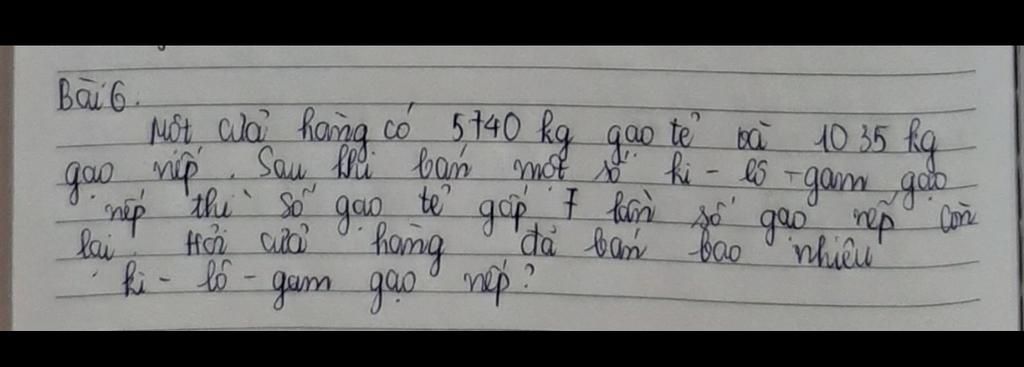 Bài 6.
Một cửa hàng có 5740 kg gạo tẻ và 1035 kg
gạo nếp. Sau khi bán một số ki-lô-gam gạo
nếp thì số gạo tẻ gấp 7 lần số gạo nếp còn
lại. Hỏi cửa hàng đã bán bao nhiêu
ki-lô-gam gạo nếp?